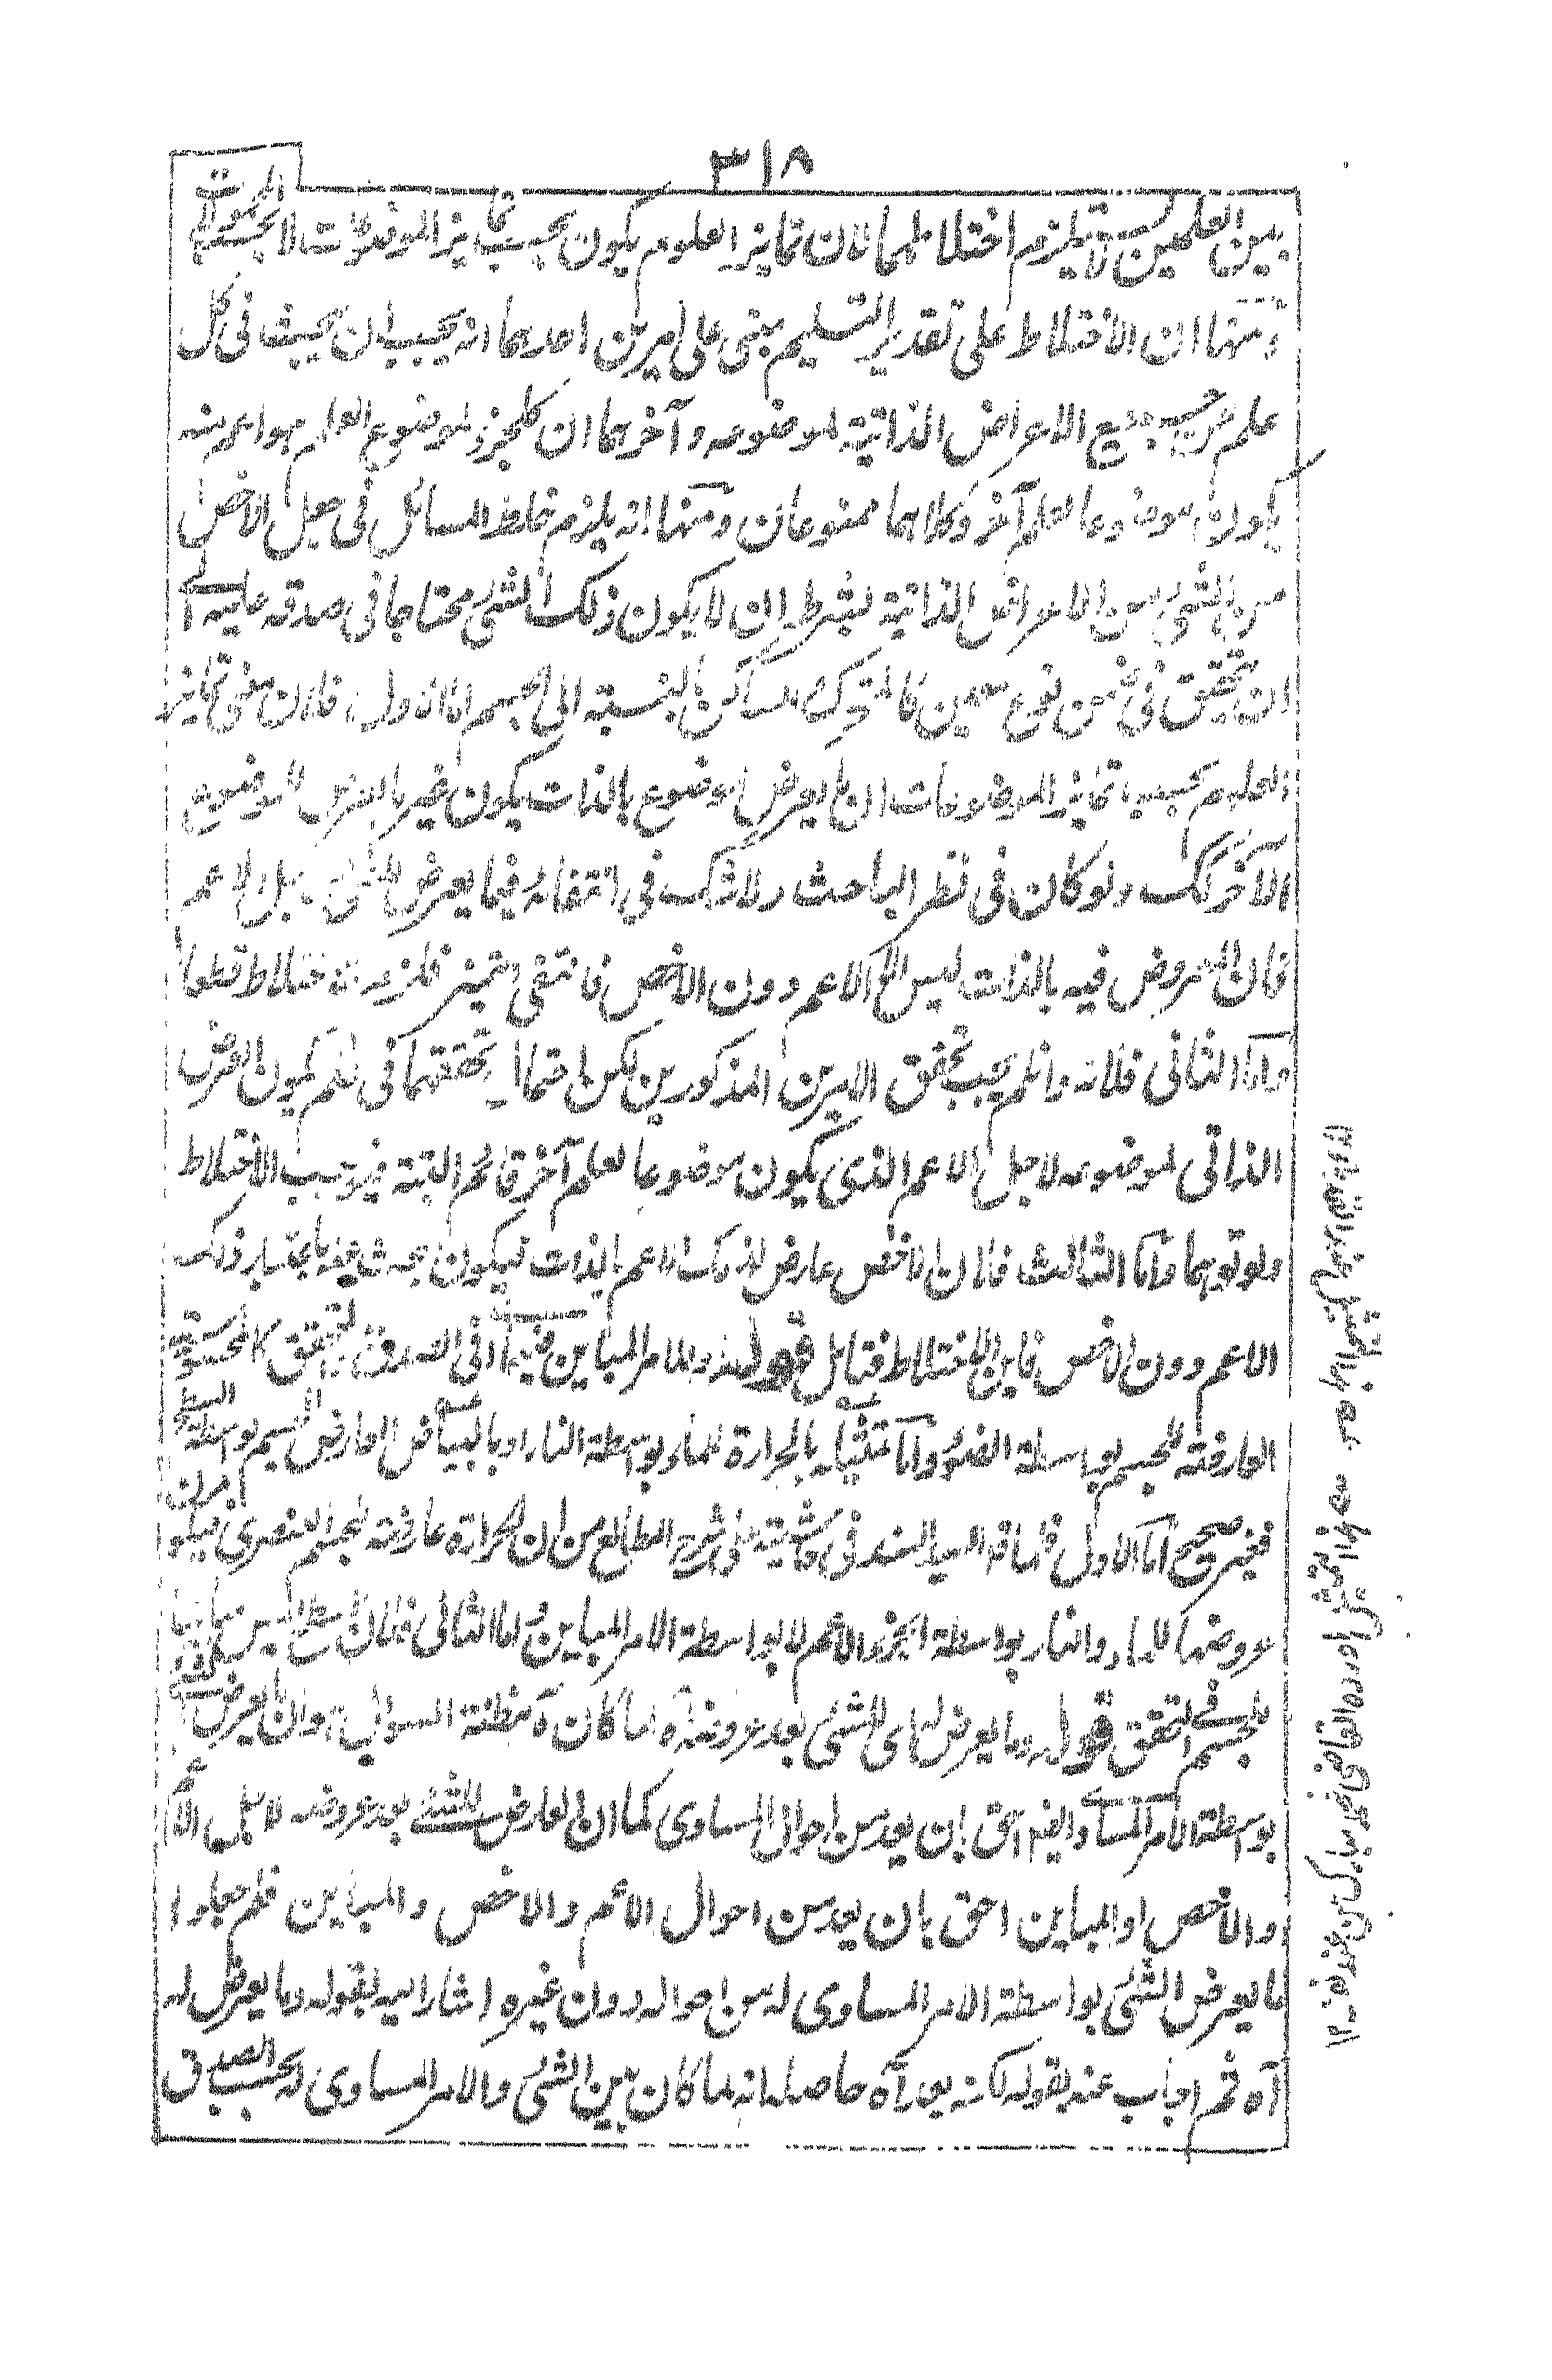 ٣١٨
بين العلمين لا يلزم اختلاطهما لان تمايز العلوم يكون بحسب تمايز الموضوعات لا بحسب المحمولات
ومنها ان الاختلاط على تقدير التسليم مبنى على امرين احدهما انه يجب ان يبحث فى كل
علم عن جميع الاعراض الذاتية لموضوعه وآخرهما ان كلجزء لموضوع العلم هو اعم منه
يكون موضوعا لعلم آخر وكلاهما ممنوعان ومنها انه يلزم خلط المسائل فى جعل الاخص
من الشئ من الاعراض الذاتية بشرط ان لا يكون ذلك الشئ محتاجا فى صدقه عليه الے
ان يتحقق فى ضمن نوع معين كالمتحرك والساكن بالنسبة الى الجسم اما الاول فلان معنى تمايز
العلوم بحسب تمايز الموضوعات ان ما يعرض لموضوع بالذات يكون غير ما يعرض لموضوع
الآخر كك ولو كان فى نظر الباحث ولا شك فى انتفائه فيما يعرض للشئ لاجل الاعم
فان المعروض فيه بالذات ليس الا الاعم دون الاخص فانتفى التميز فلزم الاختلاط قطعا
واما الثانى فلانه وان لم يجب تحقق الامرين المذكورين لكن احتمال تحققهما فى علم يكون العرض
الذاتى لموضوعه لاجل الاعم الذى يكون موضوعا لعلم آخر قائم البتة فيوجب الاختلاط
ولو توهما واما الثالث فلان الاخص عارض لذلك الاعم بالذات فيكون بحث عنه باعتبار ذلك
الاعم دون الاخص فاين الاختلاط فتامل قوله وللامر المباين فى الصدق والتحقق كالحمرة
العارضة للجسم بواسطة الضوء واما تمثيله بالحرارة للماء بواسطة النار او بالبياض العارض للجسم بواسطة السطح
فغير صحيح اما الاول فلما قال السيد السند فى حاشيته على شرح المطالع من ان الحرارة عارضة للجسم العنصرى فيكون
عروضها للماء والنار بواسطة الجزء الاعم لا بواسطة الامر المباين واما الثانى فلان السطح ليس مباينا
للجسم فى التحقق قوله وما يعرض له اى للشئ بعد عروضه آه لما كان مظنة السوال وان ما يعرض للشئ
بواسطة الامر المساوى له احق بان يعد من احوال المساوى كما ان العارض للشئ بعد عروضه لاجل الاعم
والاخص او المباين احق بان يعد من احوال الاعم والاخص والمباين فلم جعلوا
ما يعرض الشئ بواسطة الامر المساوى له من احواله دون غيره اشار اليه بقوله وما يعرض له
آه ثم اجاب عنه بقوله لكنه يعد آه حاصله انه لما كان بين الشئ والامر المساوى له بحسب الصدق